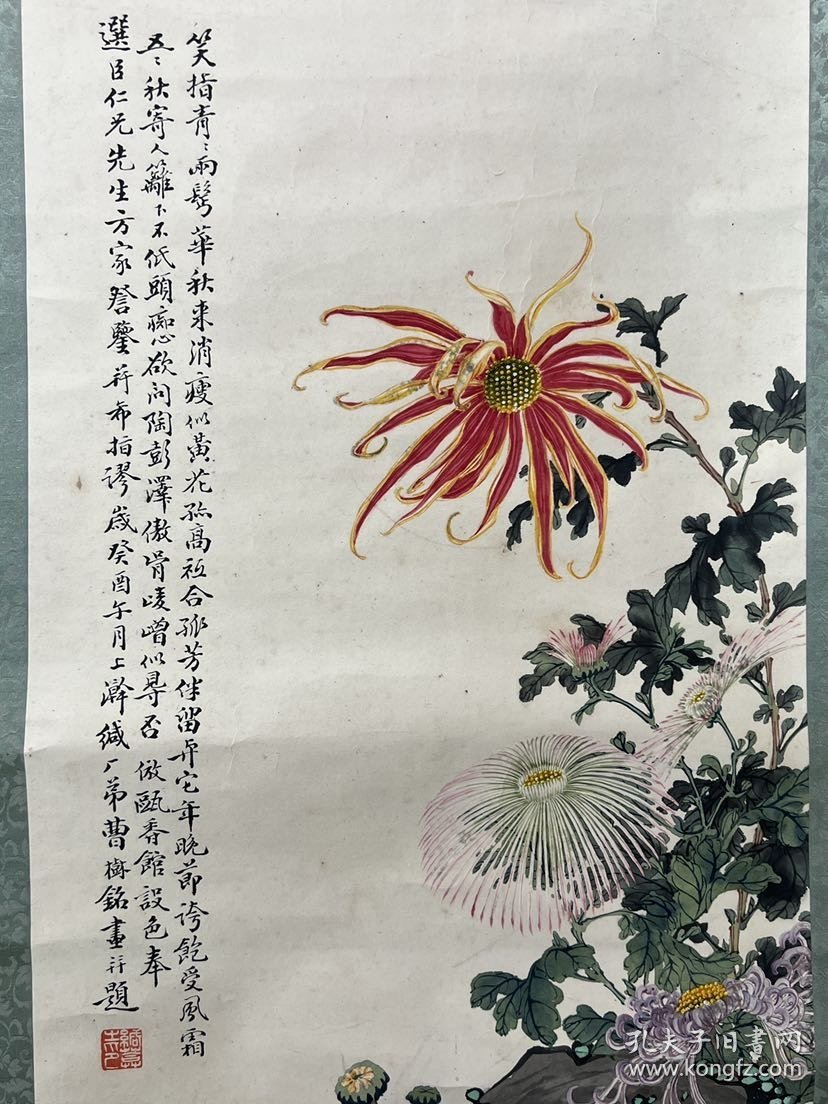 笑指青〻兩鬢華秋来消瘦似黄花孤高祗合孤芳伴留弄它年晚節誇飽受風霜
五〻秋寄人籬下不低頭痴心欲问陶彭澤傲骨崚嶒似尋否 倣甌香館設色奉
選臣仁兄先生方家詧鑒并希指謬歲癸酉午月上澣緘厂弟曹樹銘畫并題
孔夫子旧書网
www.kongfz.com